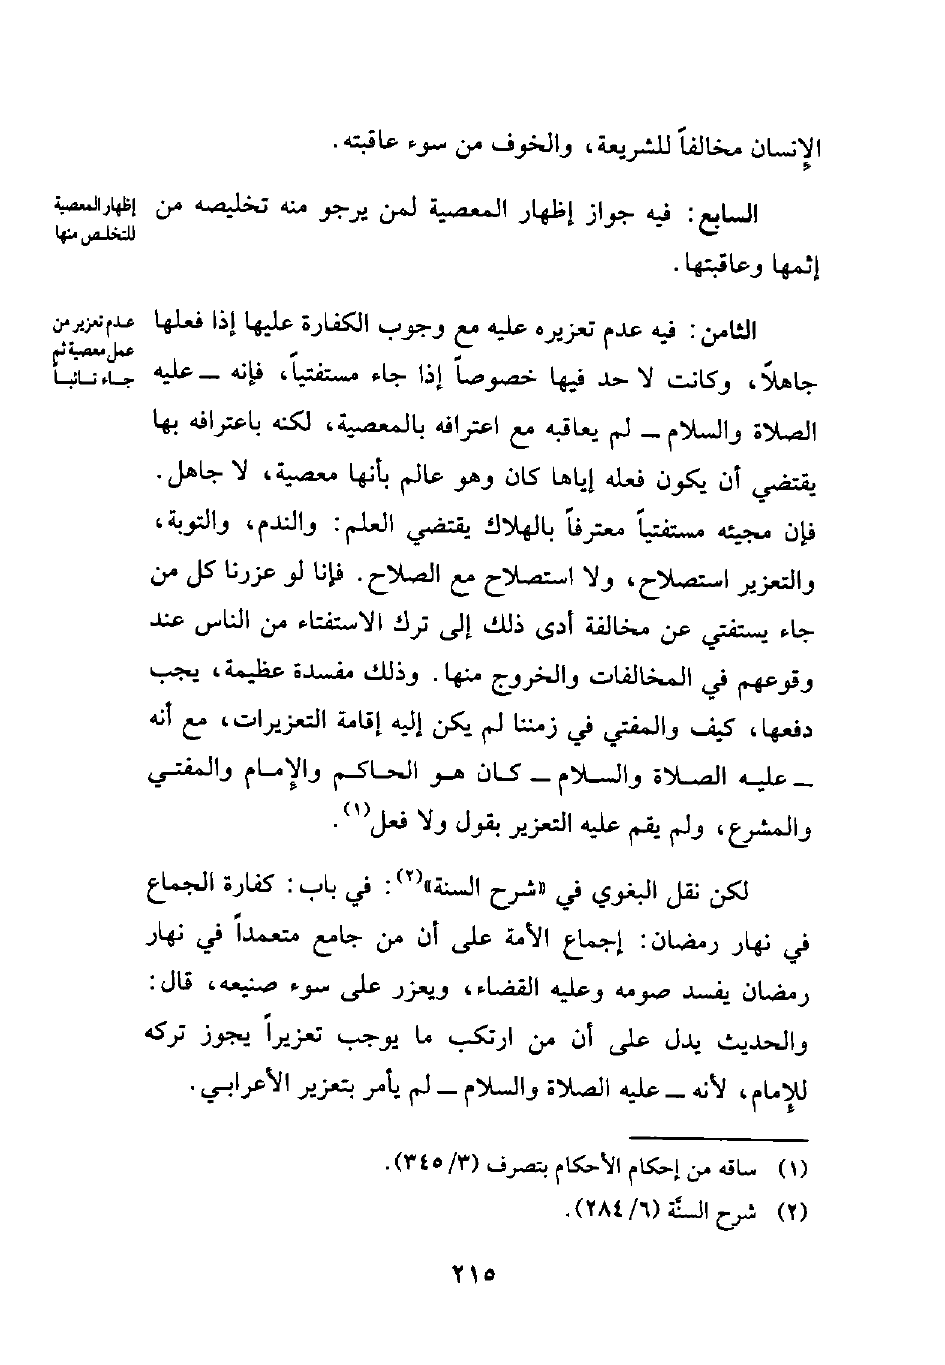 الإنسان مخالفاً للشريعة، والخوف من سوء عاقبته.
السابع: فيه جواز إظهار المعصية لمن يرجو منه تخليصه من
إثمها وعاقبتها.
إظهار المعصية
للتخلص منها
الثامن: فيه عدم تعزيره عليه مع وجوب الكفارة عليها إذا فعلها
جاهلاً، وكانت لا حد فيها خصوصاً إذا جاء مستفتياً، فإنه ــ عليه
الصلاة والسلام ــ لم يعاقبه مع اعترافه بالمعصية، لكنه باعترافه بها
يقتضي أن يكون فعله إياها كان وهو عالم بأنها معصية، لا جاهل.
فإن مجيئه مستفتياً معترفاً بالهلاك يقتضي العلم: والندم، والتوبة،
والتعزير استصلاح، ولا استصلاح مع الصلاح. فإنا لو عزرنا كل من
جاء يستفتي عن مخالفة أدى ذلك إلى ترك الاستفتاء من الناس عند
وقوعهم في المخالفات والخروج منها. وذلك مفسدة عظيمة، يجب
دفعها، كيف والمفتي في زمننا لم يكن إليه إقامة التعزيرات، مع أنه
ــ عليه الصلاة والسلام ــ كان هو الحاكم والإمام والمفتي
والمشرع، ولم يقم عليه التعزير بقول ولا فعل(١).
عدم تعزير من
عمل معصية ثم
جاء تائباً
لكن نقل البغوي في «شرح السنة»(٢): في باب: كفارة الجماع
في نهار رمضان: إجماع الأمة على أن من جامع متعمداً في نهار
رمضان يفسد صومه وعليه القضاء، ويعزر على سوء صنيعه، قال:
والحديث يدل على أن من ارتكب ما يوجب تعزيراً يجوز تركه
للإمام، لأنه ــ عليه الصلاة والسلام ــ لم يأمر بتعزير الأعرابي.
(١) ساقه من إحكام الأحكام بتصرف (٣/٣٤٥).
(٢) شرح السنَّة (٦/٢٨٤).
٢١٥